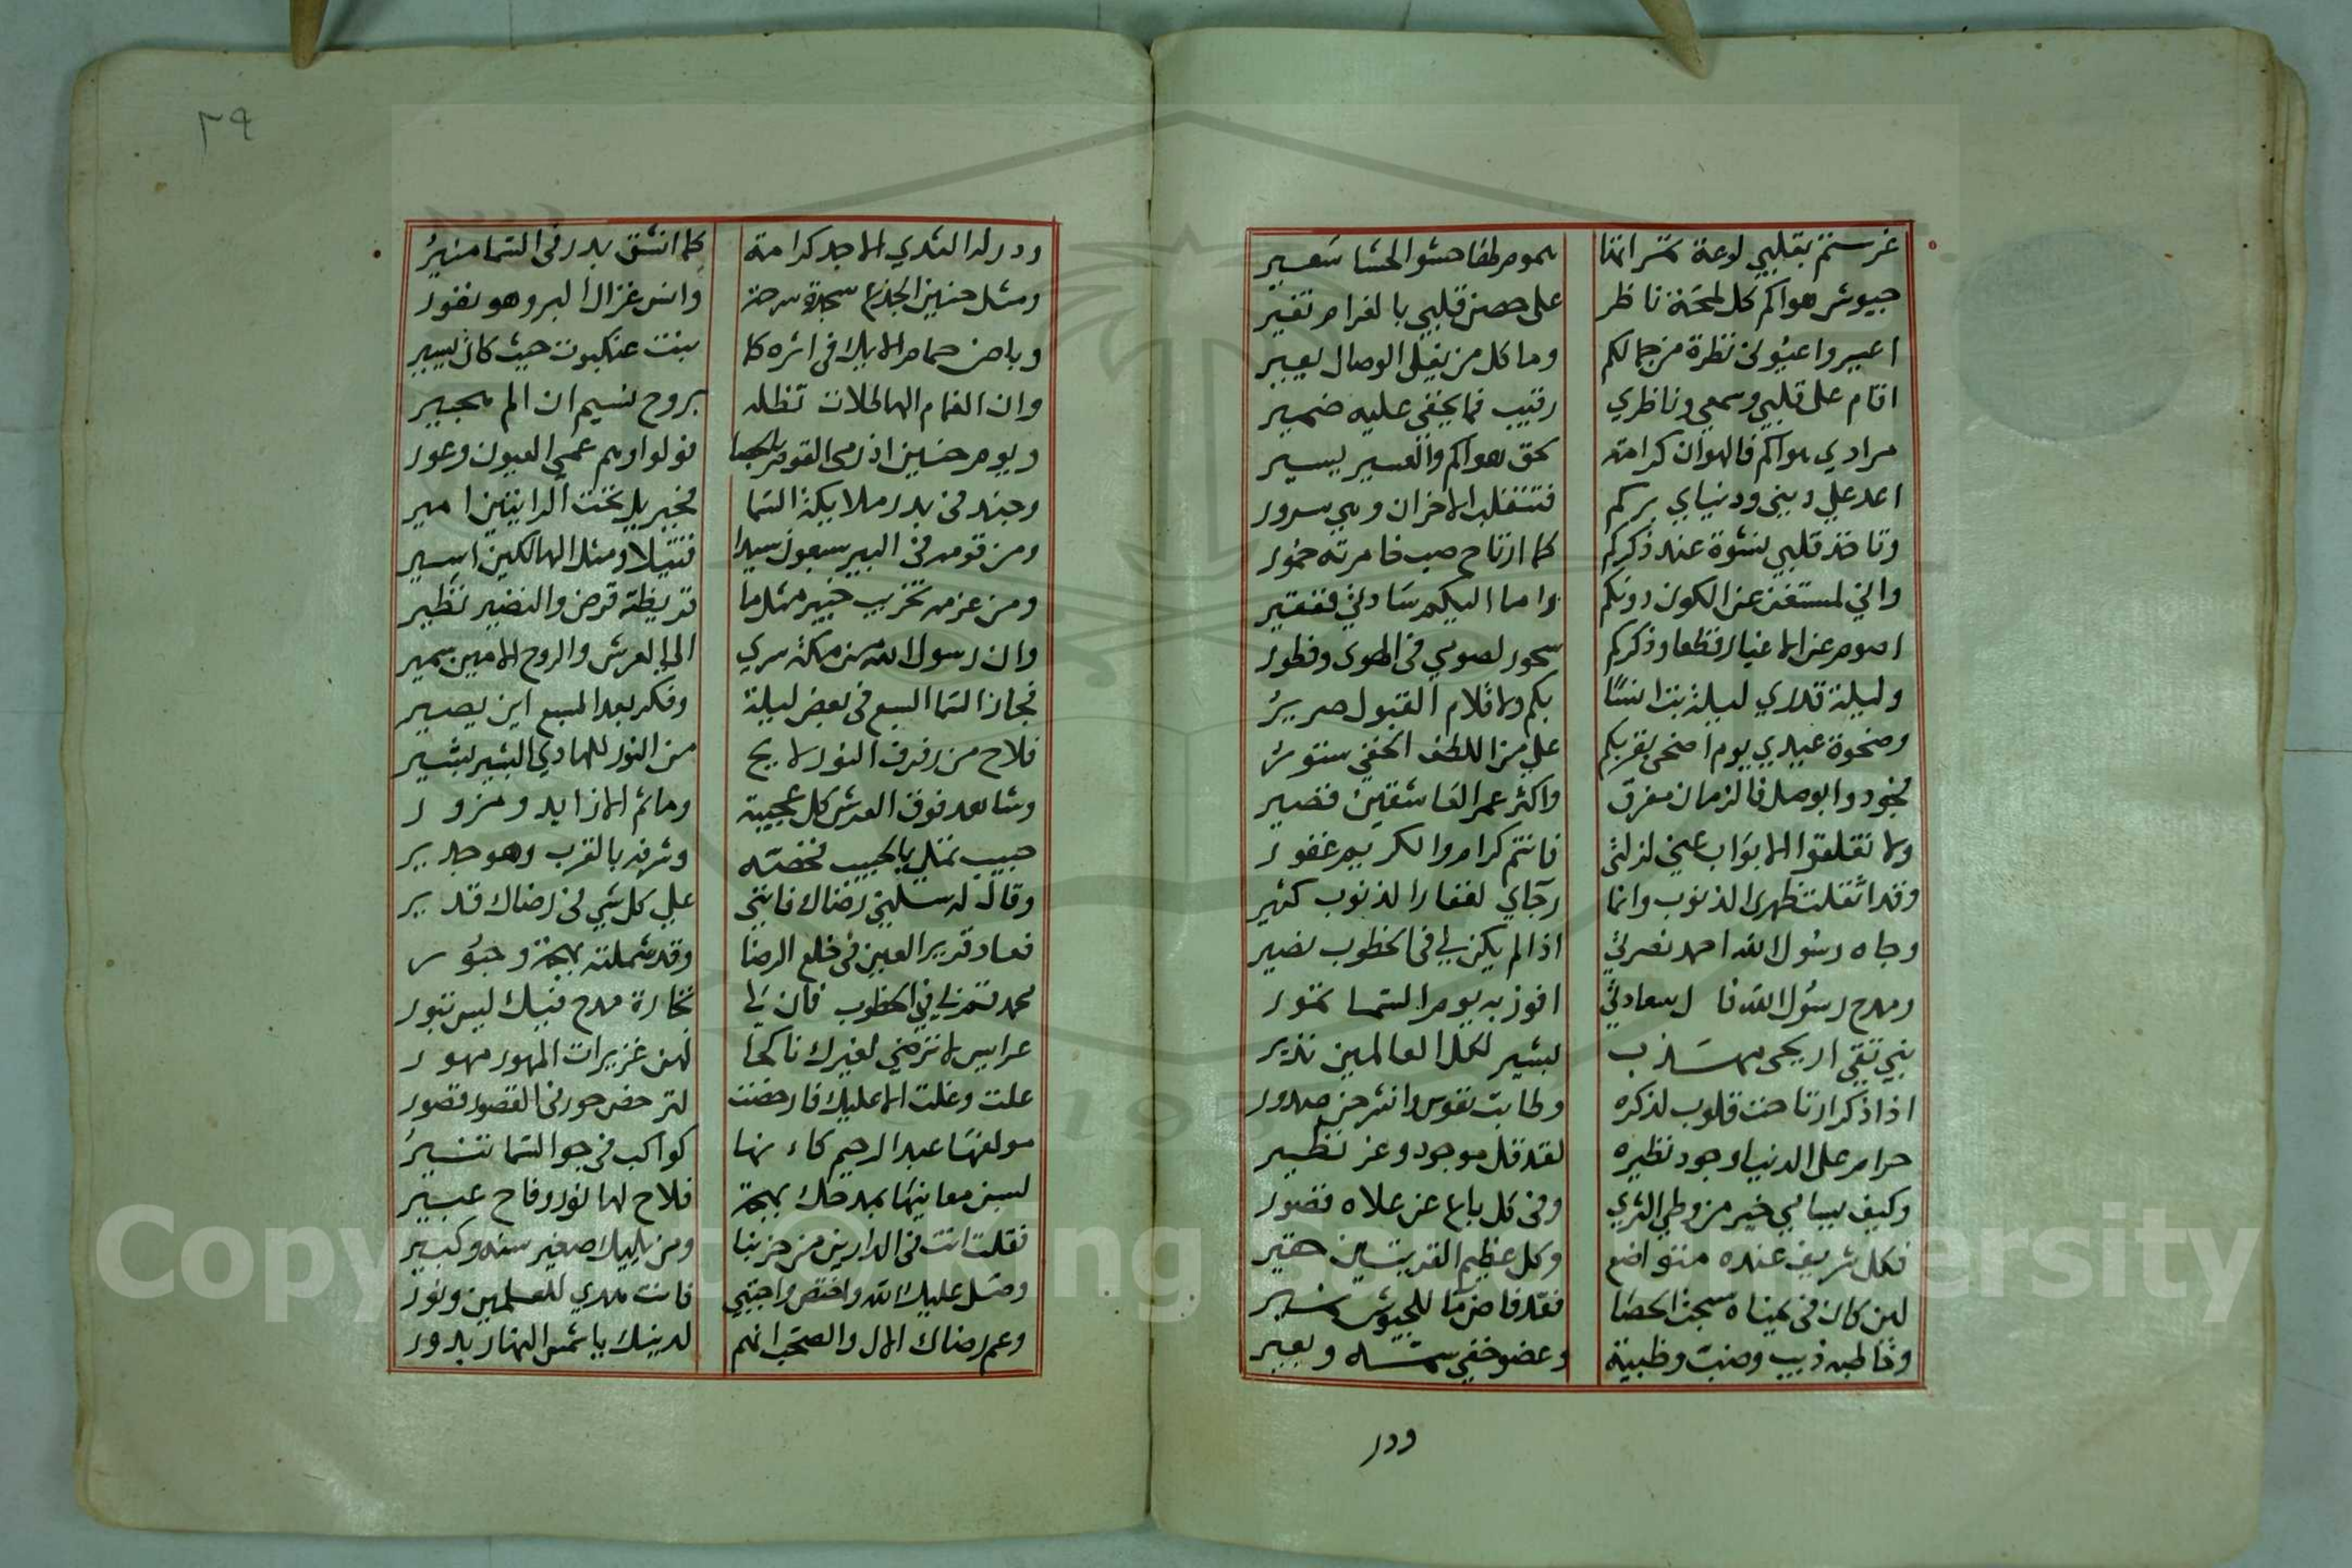 غرستم بقلبي لوعة ثمراتها
هموم لها حشو الحشا سعير
جيوش هواكم كل لمحة ناظر
على حصن قلبي بالغرام تغير
اعيروا عيوني نظرة من جمالكم
وما كل من يغلي الوصال يعير
اقام على قلبي وسمعي وناظري
رقيب فما يخفى عليه ضمير
مرادي هواكم فالهوان كرامة
بحق هواكم والعسير يسير
اعد علي ديني ودنياي بركم
فتنقلب الاحزان وهي سرور
وتاخذ قلبي نشوة عند ذكركم
كما ارتاح صب خامرته خمور
واني لمستغن عن الكون دونكم
واما اليكم سادتي ففقير
اصوم عن الاغيار قطعا وذكركم
سحور لصومي في الهوى وفطور
وليلة قدري ليلة بت انسا
بكم ولاقلام القبول صرير
وضحوة عيدي يوم اضحى بقربكم
علي من اللطف الخفي ستور
فجودوا بوصل فالزمان مفرق
واكثر عمر العاشقين قصير
ولا تغلقوا الابواب عني لزلتي
فانتم كرام والكريم غفور
وقد اثقلت ظهري الذنوب وانما
رجاي لغفار الذنوب كثير
وجاه رسول الله احمد نصرتي
اذا لم يكن لي في الخطوب نصير
ومدح رسول الله فال سعادتي
افوز به يوم السما تمور
نبي تقي اريحي مهذب
بشير لكل العالمين نذير
اذا ذكر ارتاحت قلوب لذكره
وطابت نفوس وانشرحن صدور
حرام على الدنيا وجود نظيره
لقد قل موجود وعز نظير
وكيف يسامي خير من وطي الثرى
وفي كل باع عن علاه قصور
فكل شريف عنده متواضع
وكل عظيم القريتين حقير
لين كان في يمناه سبحت الحصا
فقد فاض ما للجيوش نمير
وخاطبه ذيب وضب وظبية
وعضو خفي سمه وبعير
ودر
٢٩
ودر له الثدي الاجد كرامة
كما انشق بدر في السما منير
ومثل حنين الجذع سجدة سرحة
وانس غزال البر وهو نفور
وباض حمام الايك في اثره كما
بنت عنكبوت حيث كان يسير
وان الغمام الهاطلات تظله
بروح نسيم ان الم هجير
ويوم حنين اذ رمى القوم بالحصا
فولوا وهم عمي العيون وعور
وجند في بدر ملايكة السما
فجبريل تحت الرايتين امير
ومن قومه في البير سبعون سيدا
قتيلا ومثل الهالكين اسير
ومن عزمه تخريب خيبر مثلما
قريظة قرض والنضير نظير
وان رسول الله من مكة سرى
الى العرش والروح الامين سمير
فجاز السما السبع في بعض ليلة
وفكر بعد السبع اين يصير
فلاح من رفرف النور لايح
من النور للهادي البشير بشير
وشاهد فوق العرش كل عجيبة
وما ثم الا زايد ومزور
حبيب تملى بالحبيب فخصه
وشرفه بالقرب وهو جدير
وقال له سلني رضاك فانني
على كل شي في رضاك قدير
فعاد قرير العين في خلع الرضا
وقد شملته بهجة وحبور
محمد قم بي في الخطوب فان لي
تجارة مدح فيك ليس تبور
عرايس لا ترضي لغيرك ناكحا
لهن غزيرات المهور مهور
علت وغلت الا عليك فارخصت
لترخص حور في القصور قصور
مولفها عبد الرحيم كانها
كواكب في جو السما تسير
لبسن معانيها بمدحك بهجة
فلاح لها نور وفاح عبير
فقلت انت في الدارين من حزبنا
ومن يليك صغير سنه وكبير
وصل عليك الله واختص واجتبي
فانت هدى للعالمين ونور
وعم رضاك الال والصحب انهم
لدينك يا شمس النهار بدور
Copyright © King Saud University